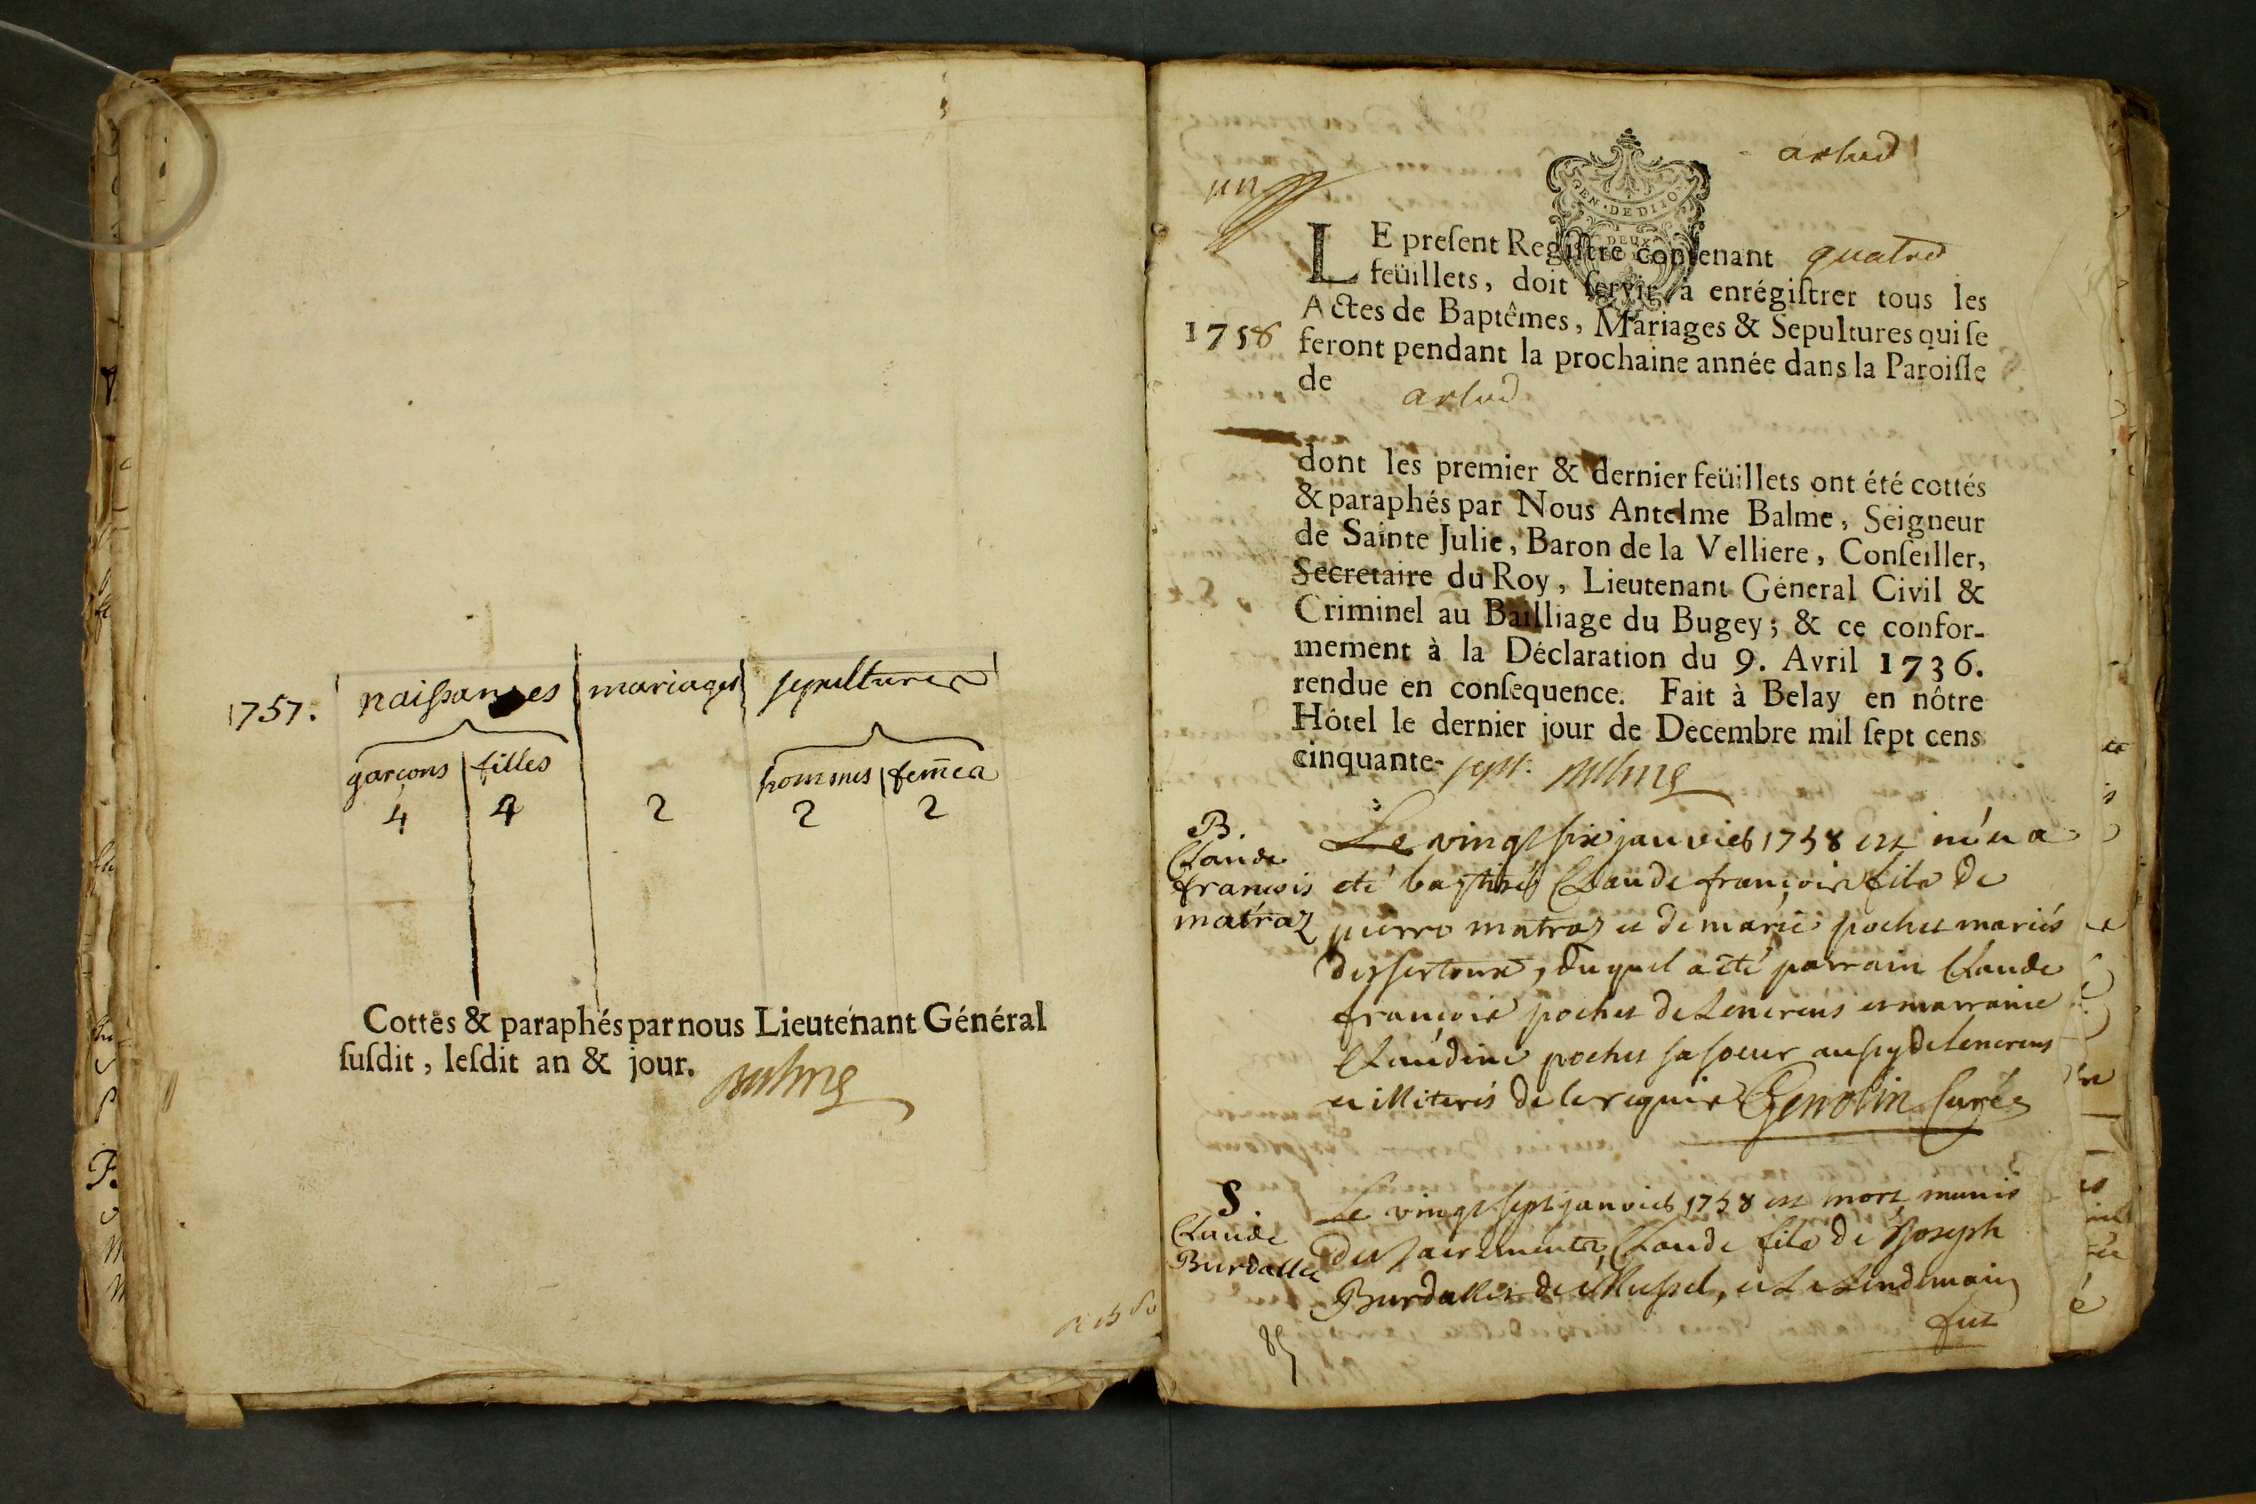 1757. naissances mariages sepultures
garcons filles hommes fem̃es
4 4 2 2 2
Cottés & paraphés par nous Lieutenant Général
susdit, lesdit an & jour. Balme
un
GEN · DE DIJON
DEUX
LE present Registre contenant quatre
feüillets, doit servir à enrégistrer tous les
Actes de Baptêmes, Mariages & Sepultures qui se
1758
feront pendant la prochaine année dans la Paroisse
de
dont les premier & dernier feüillets ont été cottés
& paraphés par Nous Antelme Balme, Seigneur
de Sainte Julie, Baron de la Velliere, Conseiller,
Secretaire du Roy, Lieutenant Géneral Civil &
Criminel au Bailliage du Bugey; & ce confor-
mement à la Déclaration du 9. Avril 1736.
rendue en consequence. Fait à Belay en nôtre
Hôtel le dernier jour de Decembre mil sept cens
cinquante- sept. Balme
B.
Claude
francois
matraz
Le vingt six janvier 1758 est né et a
eté baptisé Claude françois fils de
pierre matraz et de marie pochet mariés
duquel a été parrain Claude
françois pochet de et marraine
Claudine pochet sa soeur aussy de
et illiterés de ce requis Genolin Curé
S
Claude
Burdallet
Le vingt sept janvier 1758 est mort munis
des sacrements, Claude fils de Joseph
Burdallet de et le lendemain
fut